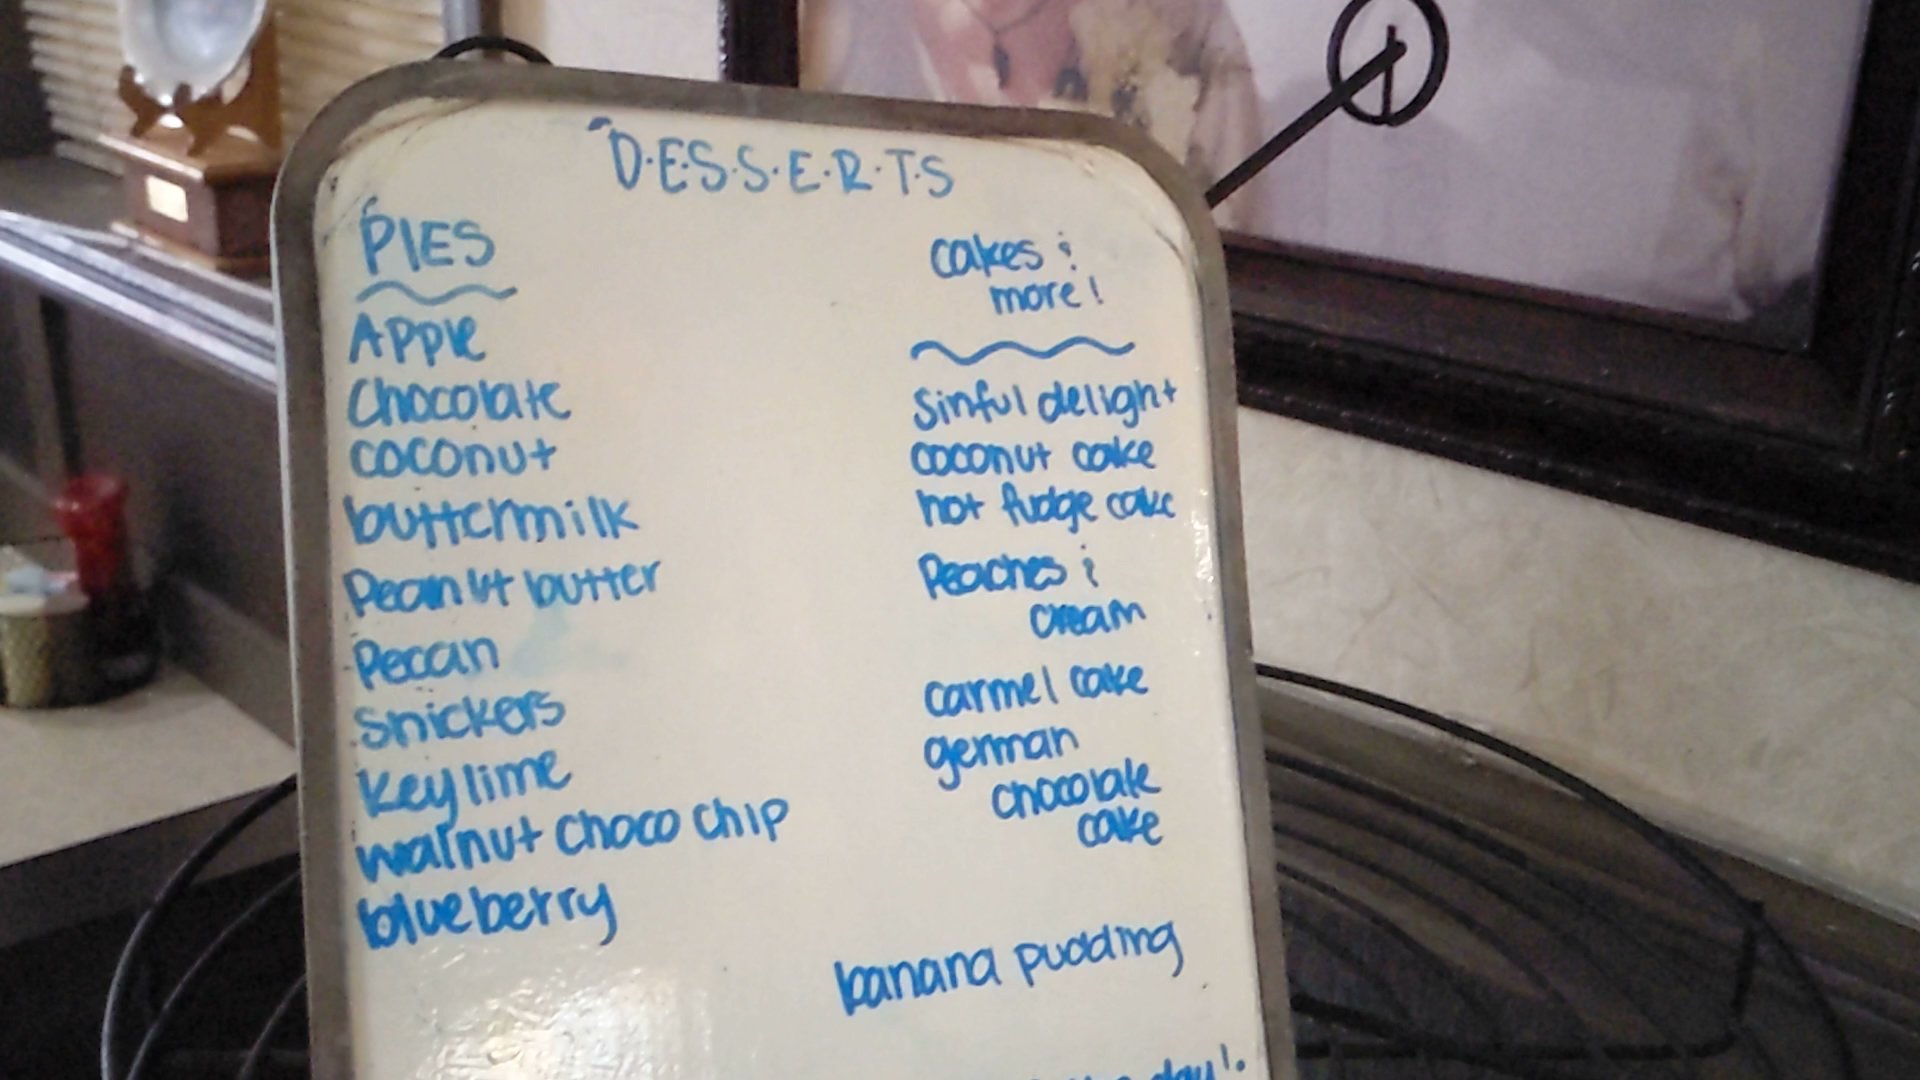 D.E.S.S.E.R.T.S
PIES
Apple
Chocolate
coconut
buttermilk
Peanut butter
Pecan
snickers
Key lime
walnut choco chip
blueberry
cakes &
more!
Sinful delight
coconut cake
hot fudge cake
Peaches &
cream
carmel cake
german
chocolate
cake
banana pudding
day!